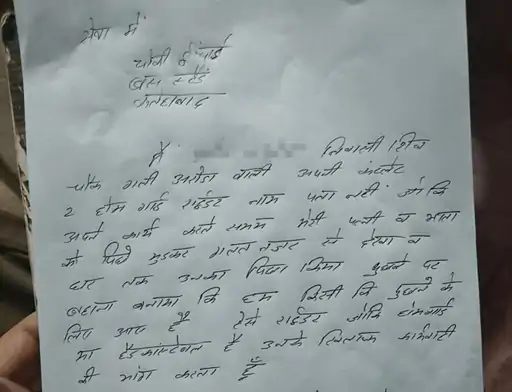 सेवा में
चौकी इंचार्ज
बस स्टैंड
फतेहाबाद
मैं निवासी शिव
चौक गली अरोडा वाली अपनी कंपलेंट
2 होम गार्ड राईडर नाम पता नहीं जो कि
अपने कार्य करते समय मेरी पत्नी व माता
को पिछे मुडकर गलत नजर से देखा व
घर तक उनका पिछा किया पुछने पर
बहाना बनाया कि हम किसी कि पुछने के
लिए आए हैं ऐसे राईडर जोकि होमगार्ड
या हैडकांस्टेबल है उनके खिलाफ कार्यवाही
की मांग करता हूँ